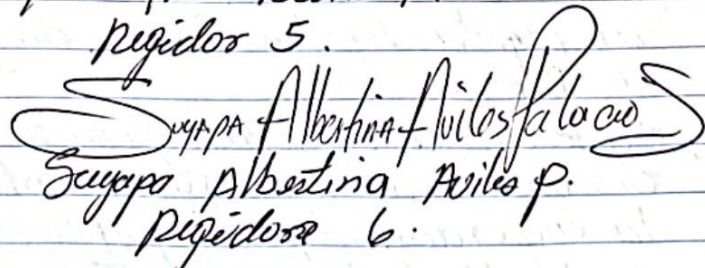 Regidor 5.
Suyapa Albertina Aviles Palacios
Suyapa Albertina Aviles P.
Regidora 6.